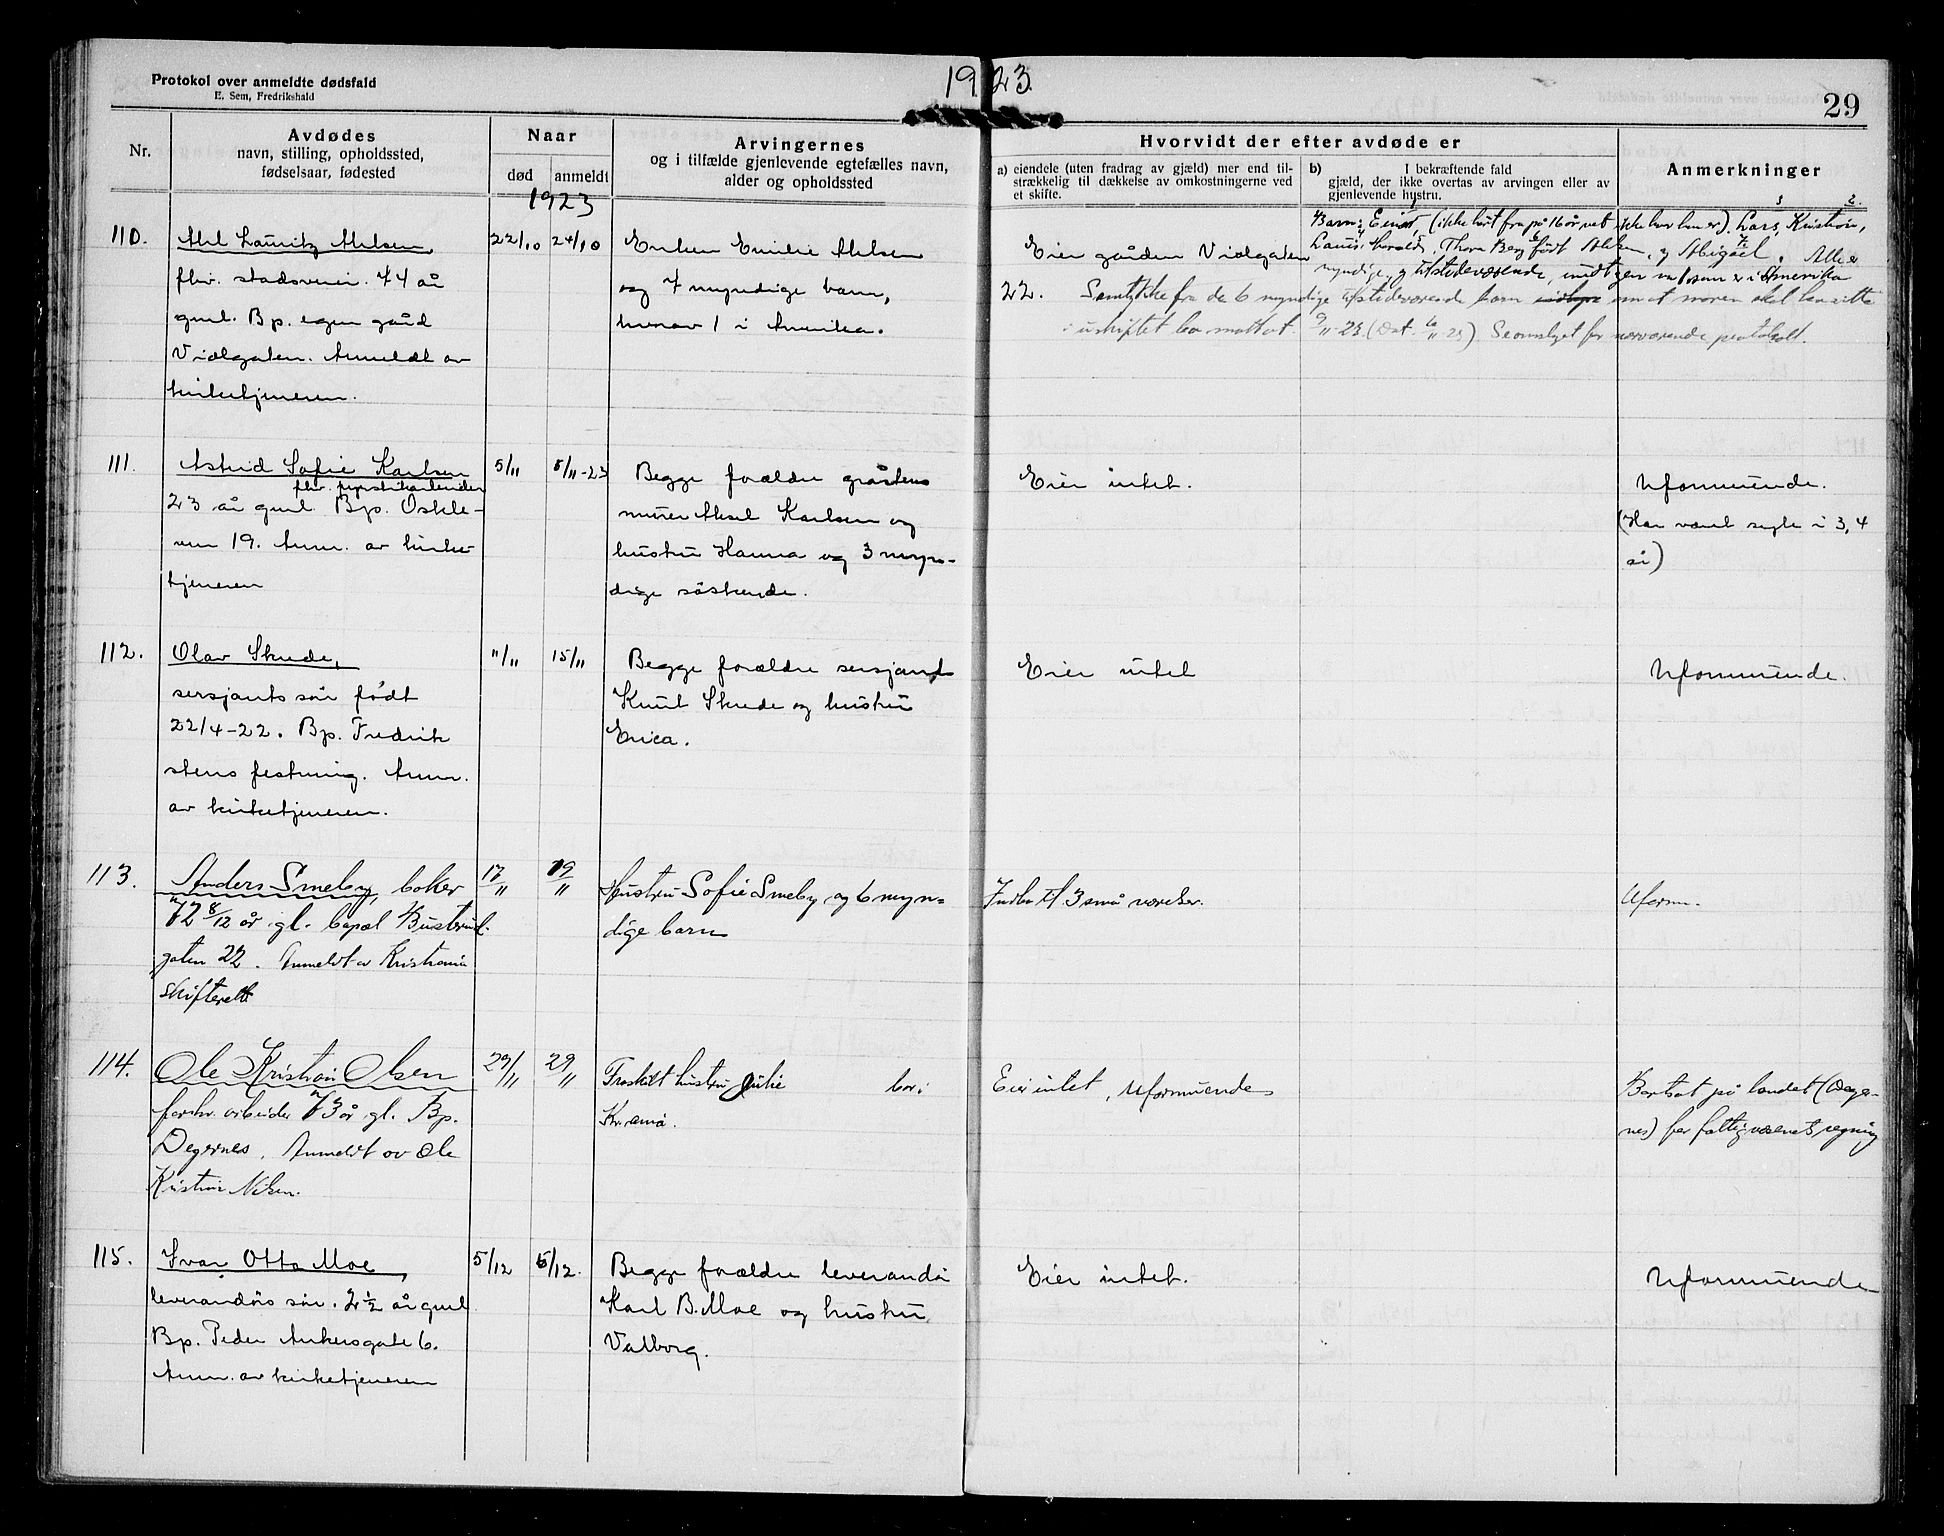 Protokol over anmeldte dødsfald
E. Sem, Fredrikshald
1923.
29
Nr.
Avdødes
navn, stilling, opholdssted,
fødselsaar, fødested
Naar
død
anmeldt
1923
Arvingernes
og i tilfælde gjenlevende egtefælles navn,
alder og opholdssted
Hvorvidt der efter avdøde er
a) eiendele (uten fradrag av gjæld) mer end til-
strækkelig til dækkelse av omkostningerne ved
et skifte.
b) I bekræftende fald
gjæld, der ikke overtas av arvingen eller av
gjenlevende hustru.
Anmerkninger
110.
Lauritz
fhv. 44 år
gml. Bp. egen gård
Vidlgaten. Anmeldt av
kirketjeneren.
22/10
24/10
Enken Emilie
og 7 myndige barn,
hvorav 1 i Amerika.
Eier gården Vidlgaten
22.
Barn: (ikke hørt fra på 16 år vet ikke hvor han er). Lars, Kristian,
Harald, Thora Berg født og Abigael. Alle er
myndige, og tilstedeværende, undtagen 1 som er i Amerika
Samtykke fra de 6 myndige tilstedeværende barn om at moren skal
i uskiftet bo mottat. nærværende protokoll.
111.
Astrid Sofie Karlsen
fhv.
23 år gml. Bp. Oskle-
ven 19. Anm. av kirke-
tjeneren
5/11
5/11-23
Begge forældre gråstens
murer Aksel Karlsen og
hustru Hanna og 3 myn-
dige søskende.
Eier intet.
Uformuende.
(Har været syk i 3, 4
år)
112.
Olav Skrede,
sersjants søn født
22/4-22. Bp. Fredrik
stens festning. Anm.
av kirketjeneren.
11/11
15/11
Begge forældre sersjant
Knut Skrede og hustru
Erica.
Eier intet
Uformuende.
113.
Anders Smeby, baker
72 8/12 år gl. bopæl
gaten 22. Anmeldt av Kristiania
skifterett
17/11
19/11
Hustru Sofie Smeby og 6 myn-
dige barn
Indbo til 3 små værelser.
Uformu.
114.
Ole Kristian Olsen
forhv. arbeider 73 år gl. Bp.
Degernes. Anmeldt av Ole
Kristian
29/11
29/11
Fraskilt hustru Julie bor i
Kr.ania.
Eier intet, Uformuende
Bortsat på landet (Dege-
nes) for fattigvæsenets regning
115.
Ivar Otto Moe,
leverandørs søn. 2 1/2 år gml
Bp. Peder Ankersgate 6.
Anm. av kirketjeneren
5/12
6/12.
Begge forældre leverandør
Karl B. Moe og hustru
Valborg.
Eier intet.
Uformuende